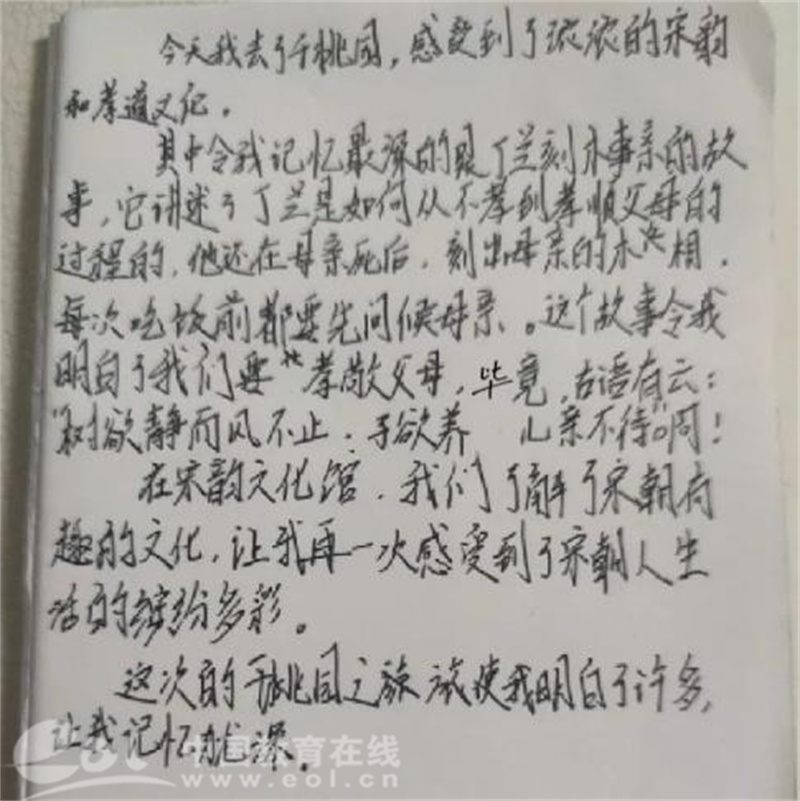 今天我去了千桃园，感受到了浓浓的宋韵
和孝道文化。
其中令我记忆最深的是丁兰刻木事亲的故
事，它讲述了丁兰是如何从不孝到孝顺父母的
过程的，他还在母亲死后，刻出母亲的木相，
每次吃饭前都要先问候母亲。这个故事令我
明白了我们要孝敬父母，毕竟，古语有云：
"树欲静而风不止，子欲养 亲不待"
在宋韵文化馆，我们了解了宋朝有
趣的文化，让我再一次感受到了宋朝人生
活的缤纷多彩。
这次的千桃园之旅 使我明白了许多，
让我记忆尤深。
中国教育在线
www.eol.cn